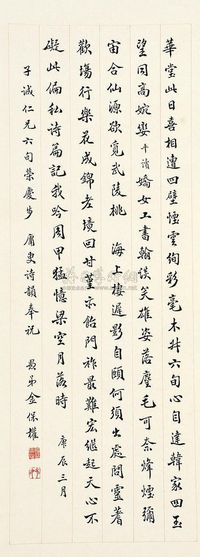 華堂此日喜相逢四壁煙雲絢彩毫木料六旬心自遠韓家四玉
望同高婉娈平清嬌女工書翰談笑雄姿落麈毛可奈烽煙彌
宙合仙源欲覓武陵桃 海上樓遲影自頤何須出處問靈蓍
歡場行樂花成錦老境回甘堇亦飴門祚最難宏繼起天心不
礙此偏私詩篇記我吟周甲猛憶梁空月落時 庚辰三月
子誠仁兄六旬榮慶步 庸叟詩韻奉祝 教弟金保權